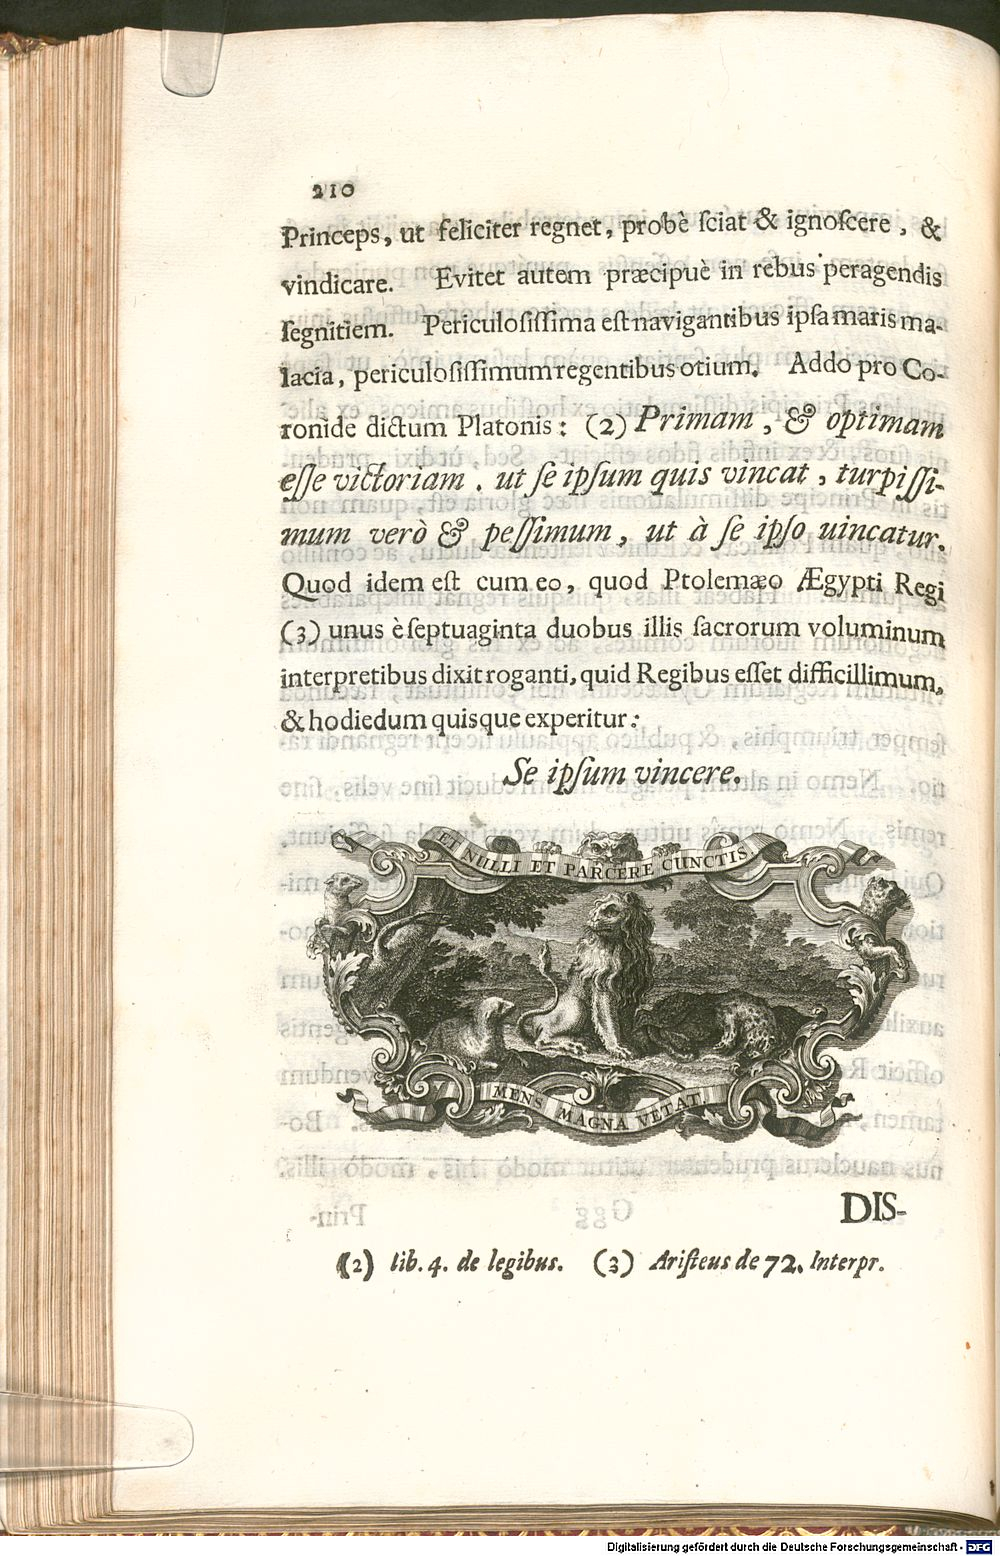 210
Princeps, ut feliciter regnet, probè ſciat & ignoſcere, &
vindicare. Evitet autem præcipuè in rebus peragendis
ſegnitiem. Periculoſiſſima eſt navigantibus ipſa maris ma-
lacia, periculoſiſſimum regentibus otium. Addo pro Co-
ronide dictum Platonis: (2) Primam, & optimam
eſſe victoriam, ut ſe ipſum quis vincat, turpiſſi-
mum verò & peſſimum, ut à ſe ipſo uincatur.
Quod idem eſt cum eo, quod Ptolemæo Ægypti Regi
(3) unus è ſeptuaginta duobus illis ſacrorum voluminum
interpretibus dixit roganti, quid Regibus eſſet difficillimum,
& hodiedum quisque experitur:
Se ipſum vincere.
ET NULLI ET PARCERE CUNCTIS
MENS MAGNA VETAT
DIS-
(2) lib. 4. de legibus. (3) Ariſteus de 72. Interpr.
Digitalisierung gefördert durch die Deutsche Forschungsgemeinschaft - DFG